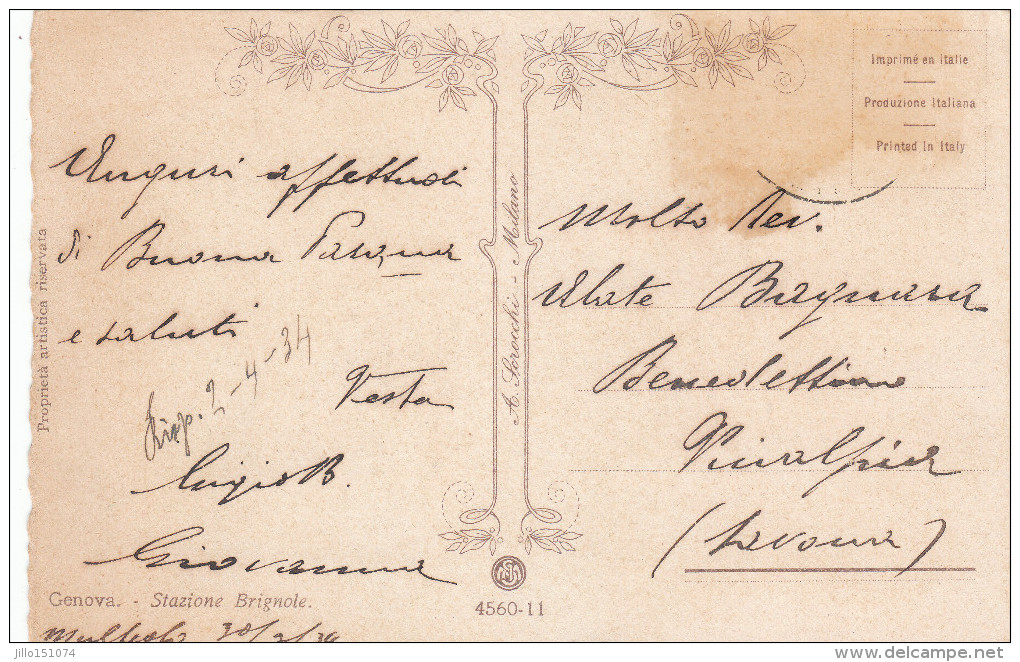 Auguri affettuosi
di Buona Pasqua
e saluti
Vesta
Risp. 2-4-34
Luigi B.
Giovanna
Genova. - Stazione Brignole.
30/3/34
Proprietà artistica riservata
A. Scrocchi - Milano
4560-11
Imprimé en Italie
Produzione Italiana
Printed in Italy
Molto Rev.
Abate Bagnara
Benedettino
Finalpia
(Savona)
jillo151074
www.delcampe.net